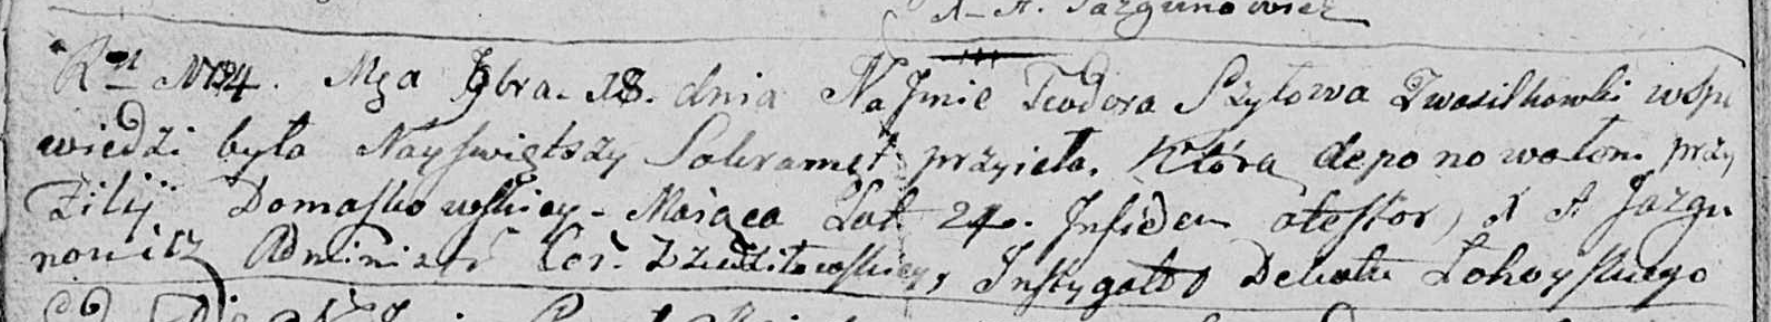 X A. Jazgunowicz
Rn N 194. Mca 9bra. 18. dnia Na Jmie Teodora Szyłowa Zwasilkowki w Spo
wiedzi była Nayswiętszy Sakrament przyieła. Która deponowałem przy
Filij Domaszkowskiey - Maiąca Lat 24. In fidem atestor, X A Jazgu
nowicz Administr Cer. Dziedziłowskiey, Instygator Dekatu Łohoyskiego